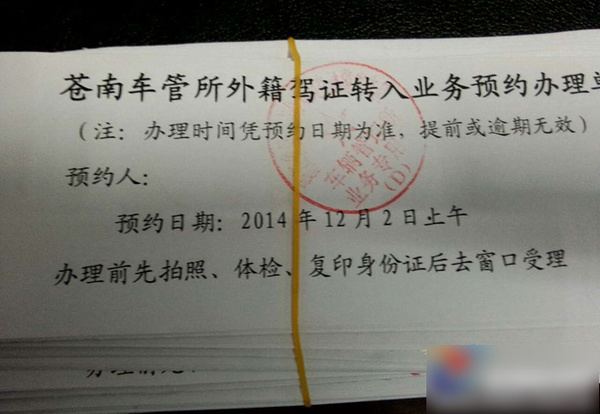 苍南车管所外籍驾证转入业务预约办理单
（注：办理时间凭预约日期为准，提前或逾期无效）
预约人：
预约日期：2014年12月2日上午
办理前先拍照、体检、复印身份证后去窗口受理
车辆管理
业务专用
(D)